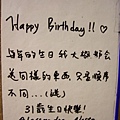 Happy Birthday!! ♡
每年的生日我大概都會
送同樣的東西,只是順序
不同...(驚)
31歲生日快樂!